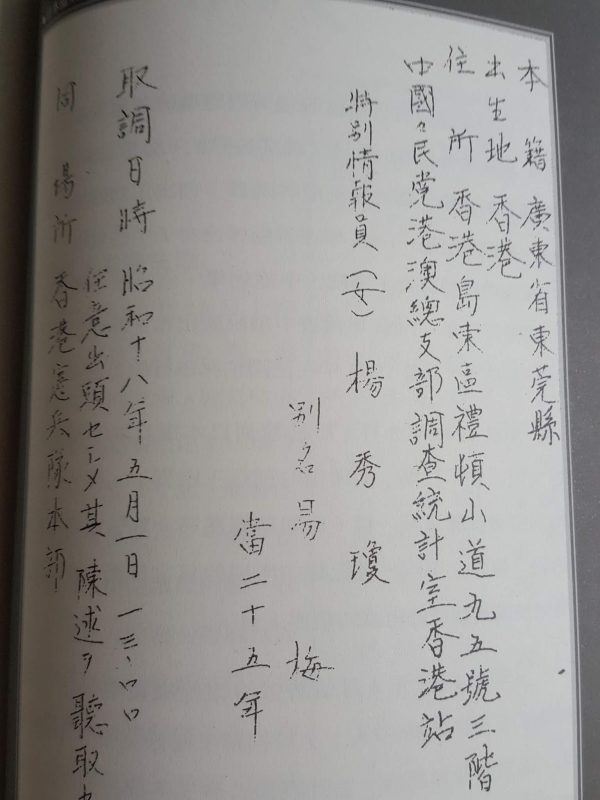 本籍 廣東省東莞縣
出生地 香港
住所 香港島東區禮頓山道九五號三階
中國々民党港澳總支部調查統計室香港站
特別情報員(女) 楊秀瓊
別名 易梅
當二十五年
取調日時 昭和十八年五月一日 一三、〇〇
任意出頭セシメ其陳述ヲ聽取
同場所 香港憲兵隊本部